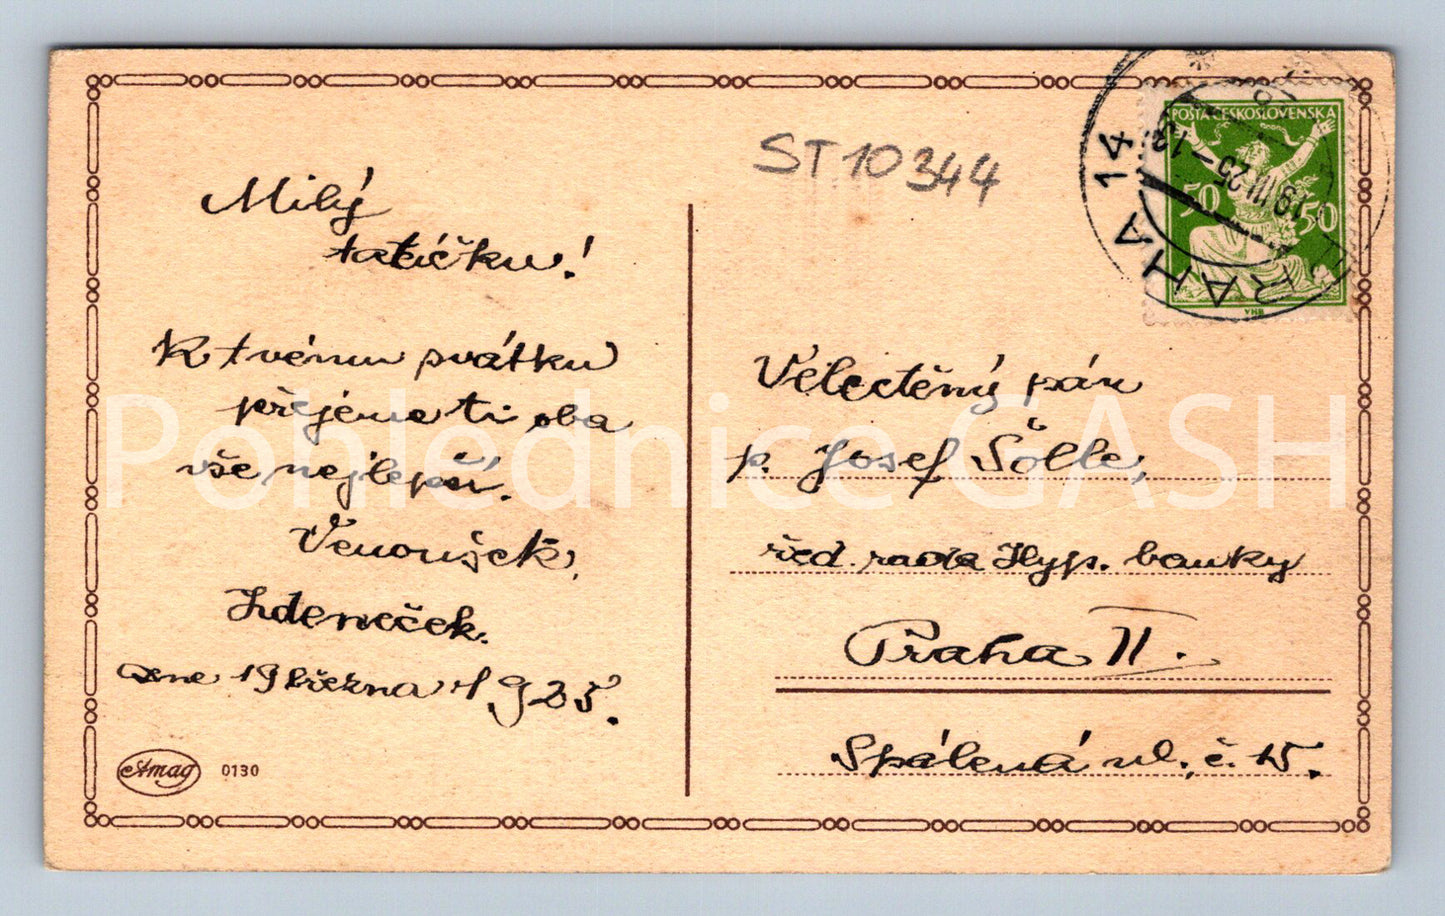 Milý
tatíčku!
K tvému svátku
přejeme ti oba
vše nejlepší.
Venoušek,
Zdeneček.
Dne 19 března 1925.
Amag 0130
ST 10344
POSTA ČESKOSLOVENSKÁ
50 50
VHB
PRAHA 14
19 III 25 - 12
Velectěný pán
p. Josef Šölle,
řed. rada Hyp. banky
Praha II.
Spálená ul. č. 15.
Pohlednice GASH